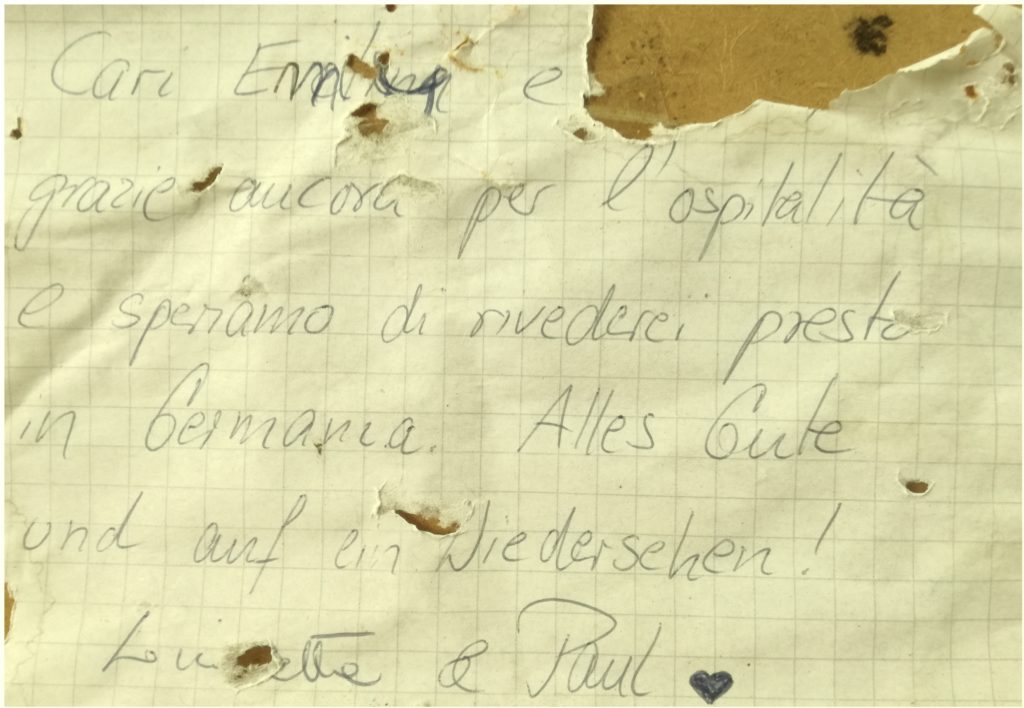 Cari e
grazie ancora per l'ospitalità
e speriamo di rivederci presto
in Germania. Alles Gute
und auf ein Wiedersehen!
& Paul